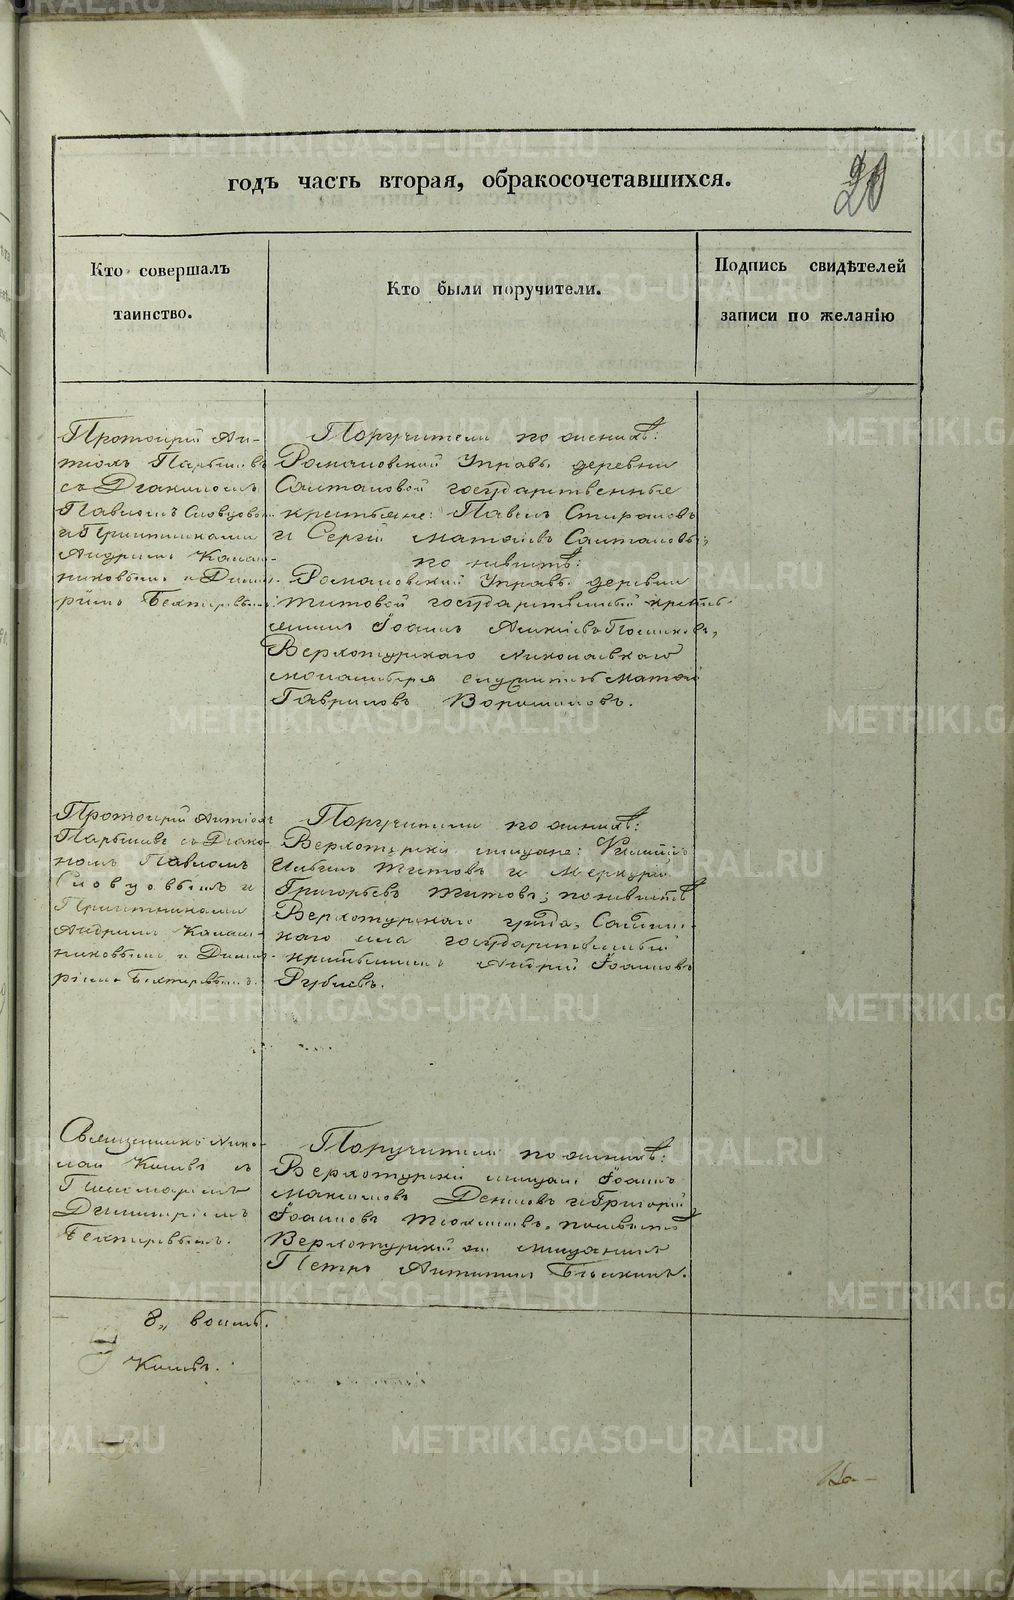 годъ часть вторая, обракосочетавшихся.
20
Кто совершалъ
таинство.
Кто были поручители.
Подпись свидѣтелей
записи по желанію
Протоіерей Ан-
тіохъ Парышевъ
съ Діакономъ
Павломъ Словцовы
и Причтниками
Андреемъ Калаш-
никовымъ и Дими-
ріемъ Бехтеревымъ
Поручители по женихѣ:
Романовской Управы деревни
Салтановой государственные
крестьяне: Павелъ
и Сергій Матѳіевъ Салтановъ;
по невѣстѣ:
Романовской Управы деревни
Титовой государственный кресть-
янинъ Іоаннъ
Верхотурскаго Николаевскаго
монастыря служитель Матѳей
Гавриловъ Ворошиловъ.
Протоіерей Антіохъ
Парышевъ съ Діако-
номъ Павломъ
Словцовымъ и
Причтниками
Андреемъ Калаш-
никовымъ и Дими-
ріемъ Бехтеревымъ.
Поручители по женихѣ:
Верхотурскіе мещане:
Титовъ и Меркурій
Григорьевъ Титовъ; по невѣстѣ
Верхотурскаго
наго села государственный
крестьянинъ Андрей Іоанновъ
Священникъ Нико-
лай Киселевъ съ
Пономаремъ
Димитріемъ
Бехтеревымъ.
Поручители по женихѣ:
Верхотурскіе мещане Іоаннъ
Максимовъ Денисовъ и Григорій
Іоанновъ по невѣстѣ
Верхотурскій мещанинъ
Петръ
8„ восмь.
METRIKI.GASO-URAL.RU